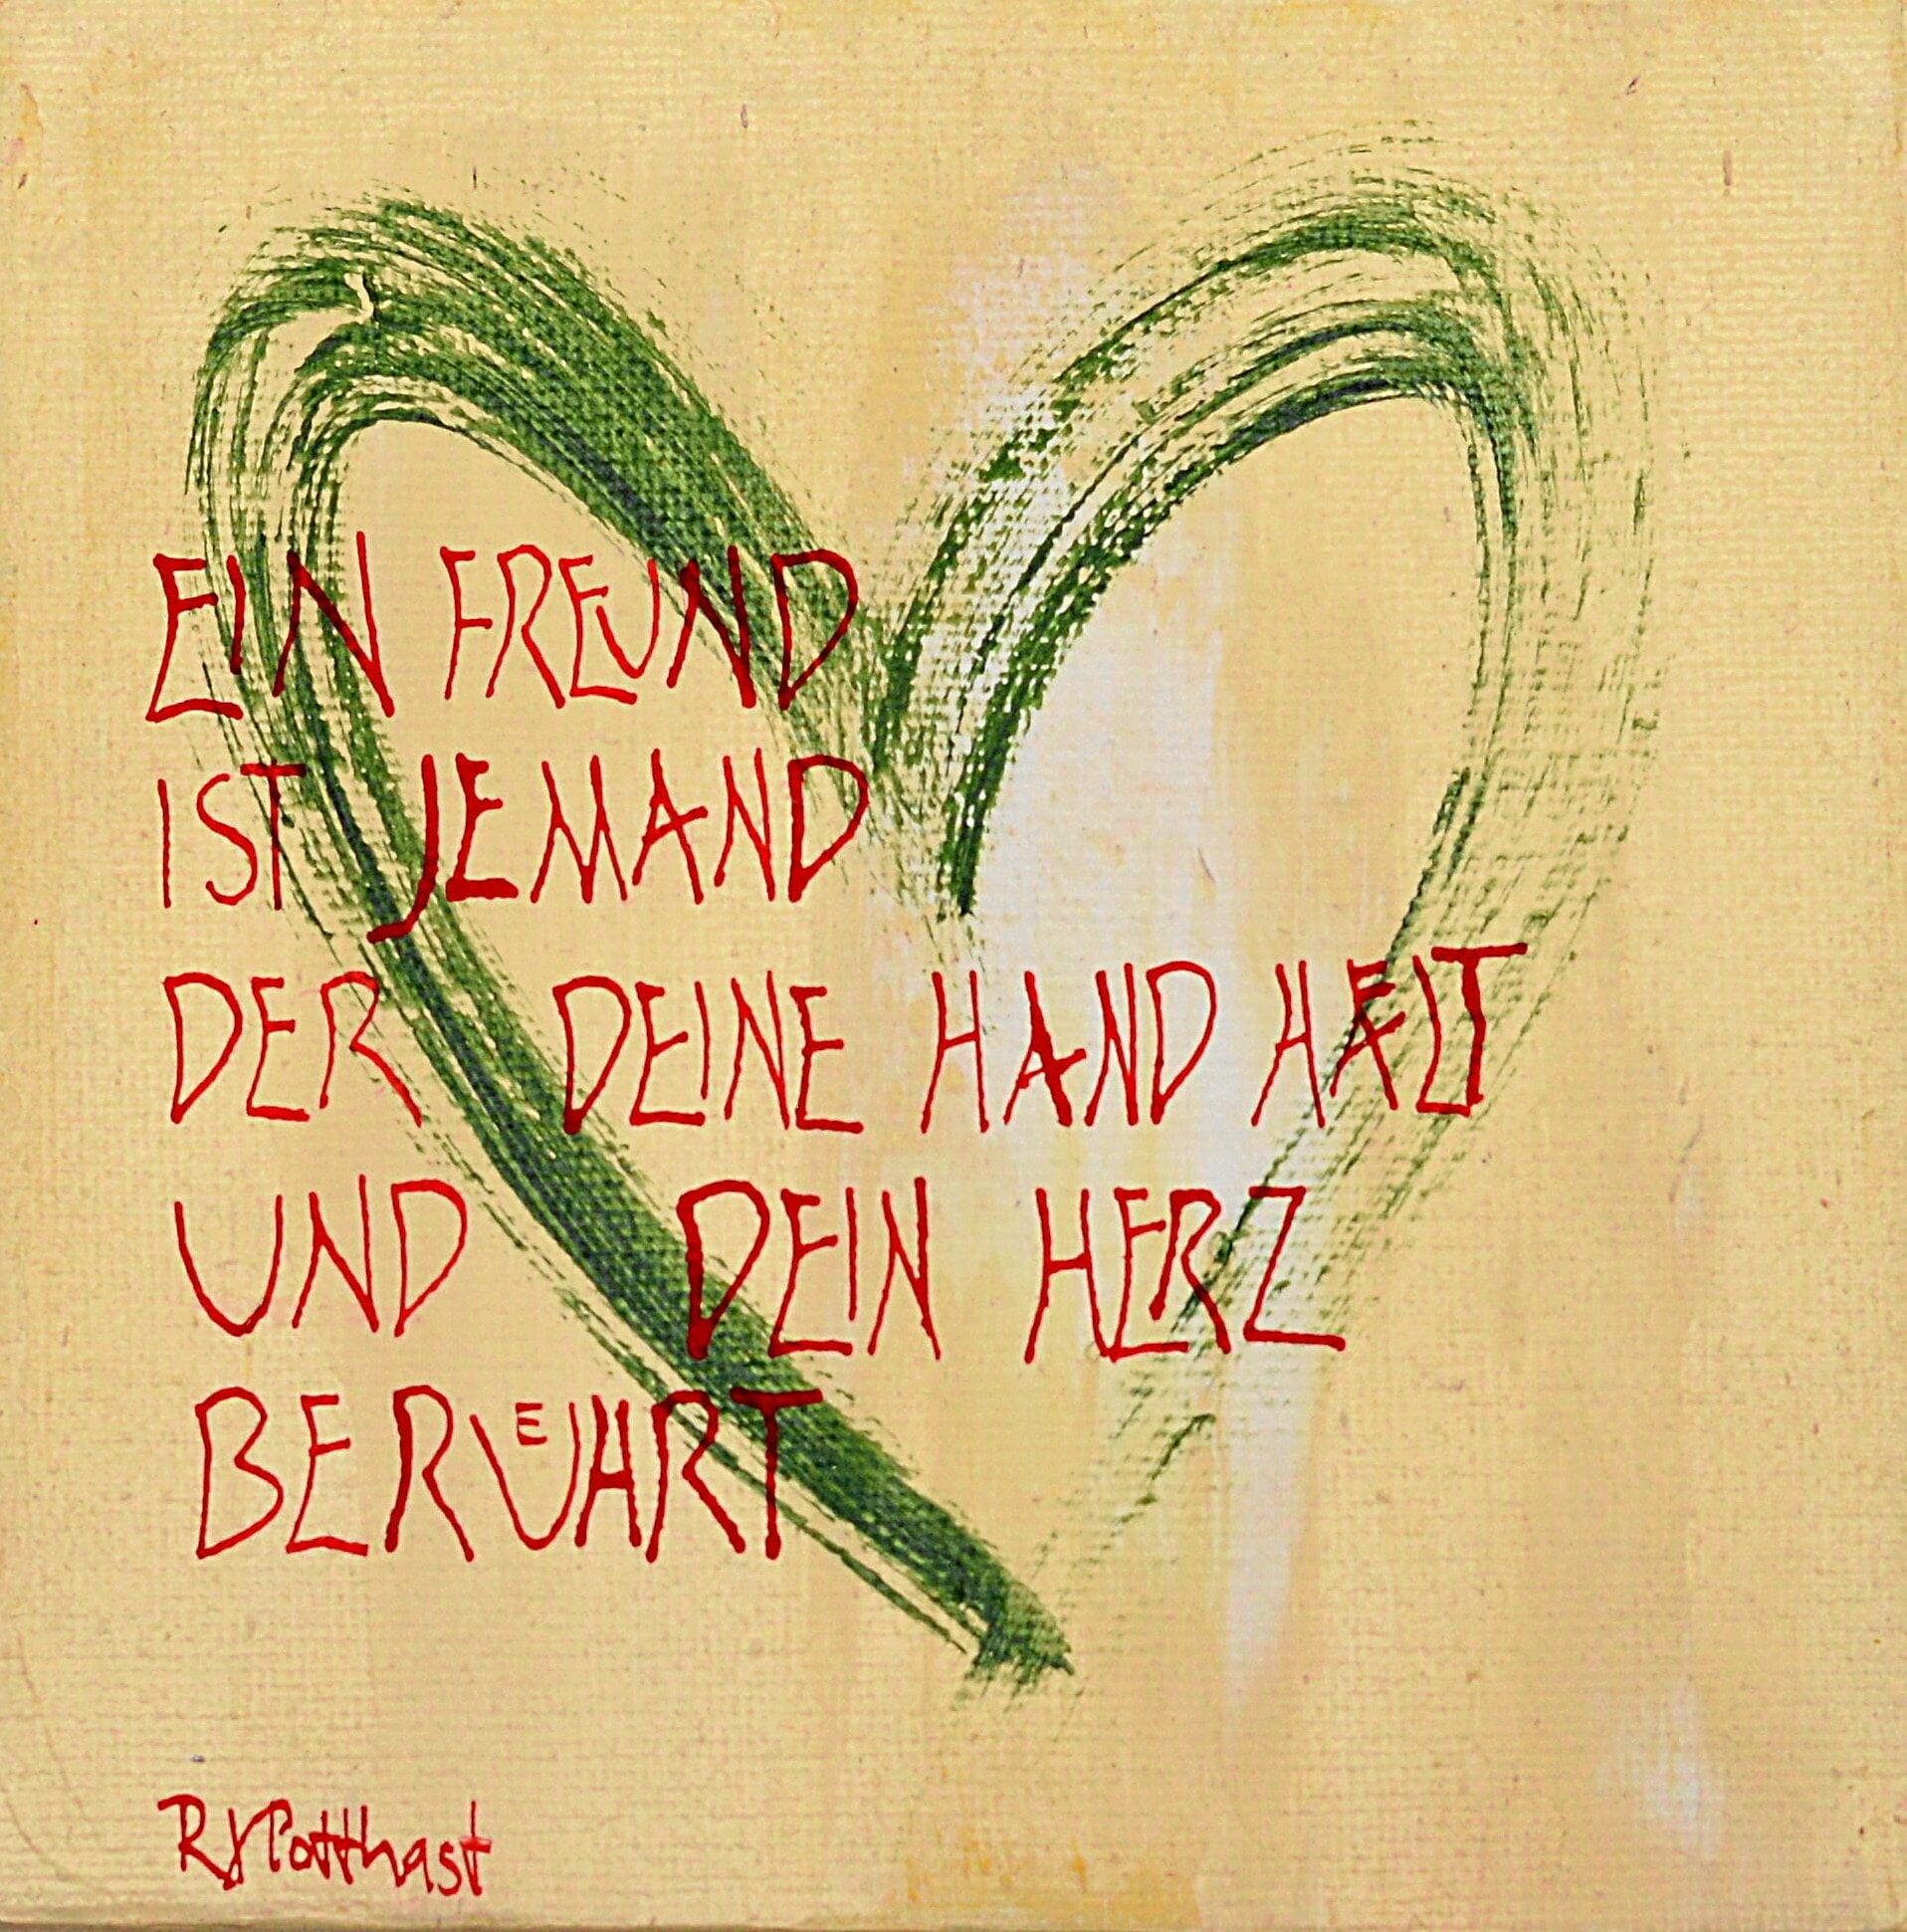 EIN FREUND
IST JEMAND
DER DEINE HAND HAELT
UND DEIN HERZ
BERUEHRT
RJPotthast